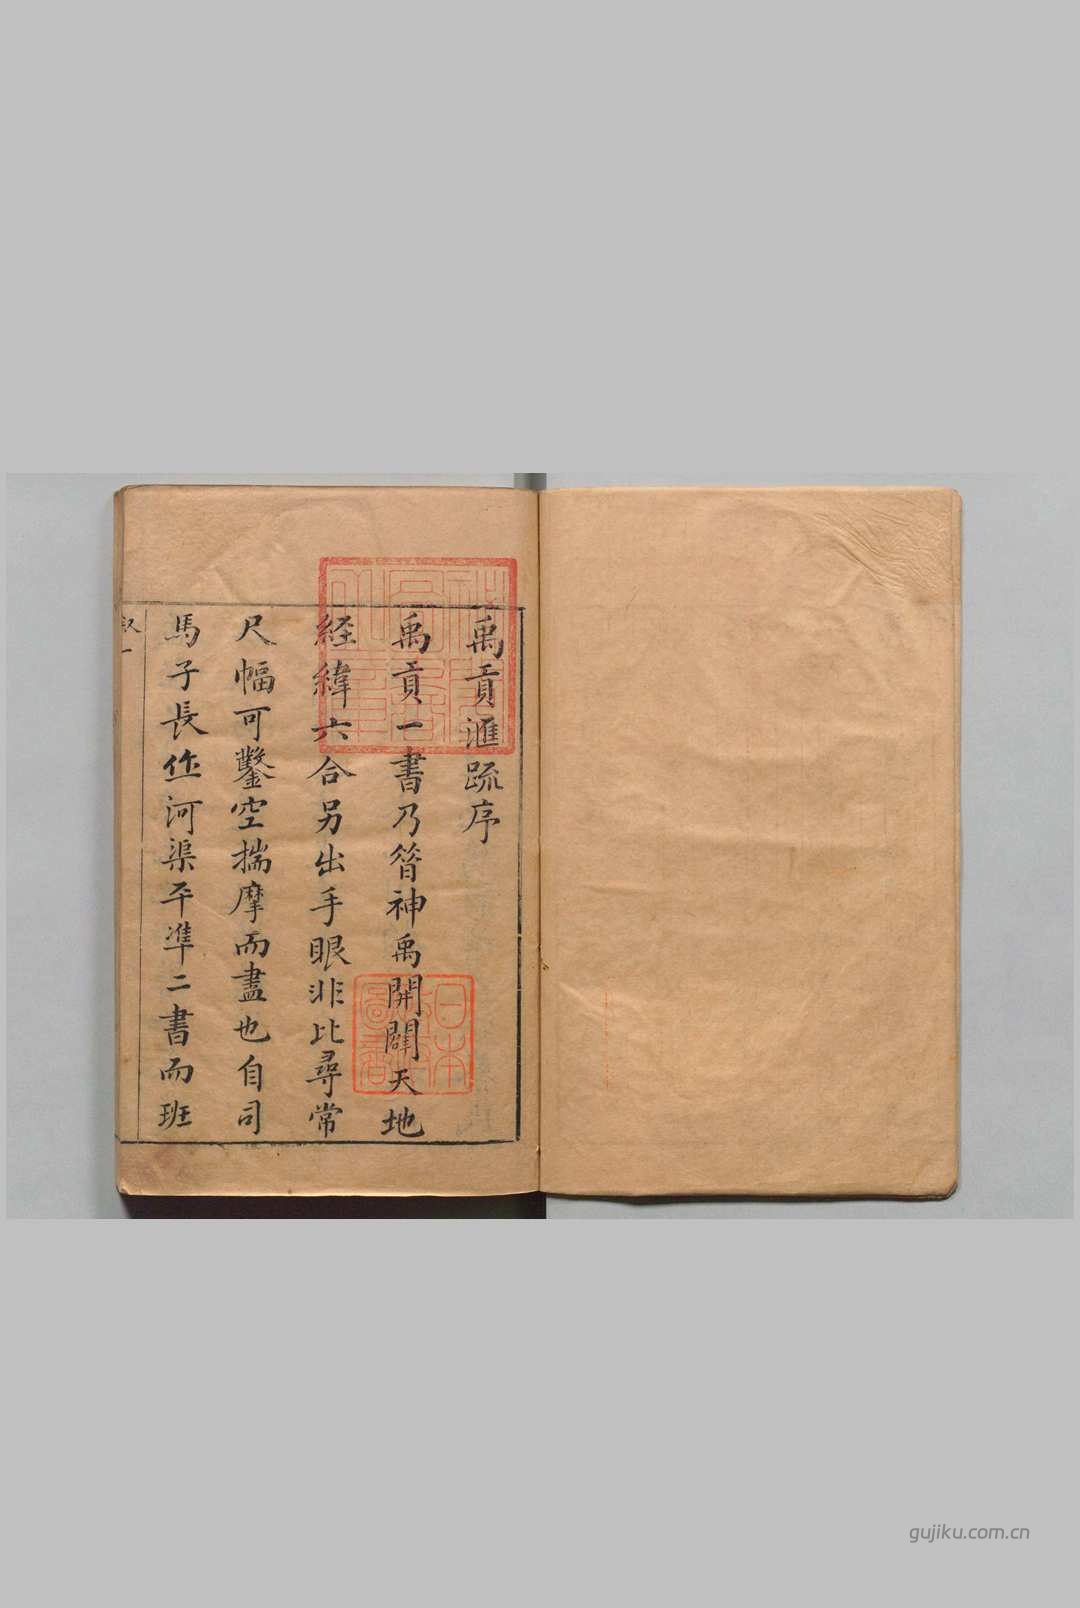 禹貢滙疏序
禹貢一書乃昝神禹開闢天地
経緯六合另出手眼非比尋常
尺幅可鑿空揣摩而盡也自司
馬子長作河渠平準二書而班
日本
圖書
gujiku.com.cn